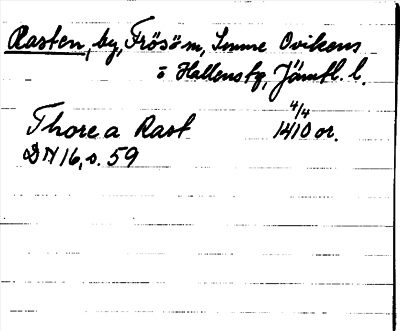 Rasten, by, Frösö m, Sunne Ovikens
o Hallens tg, Jämtl. l.
4/4
Thore a Rast 1410 or.
DN 16, s. 59